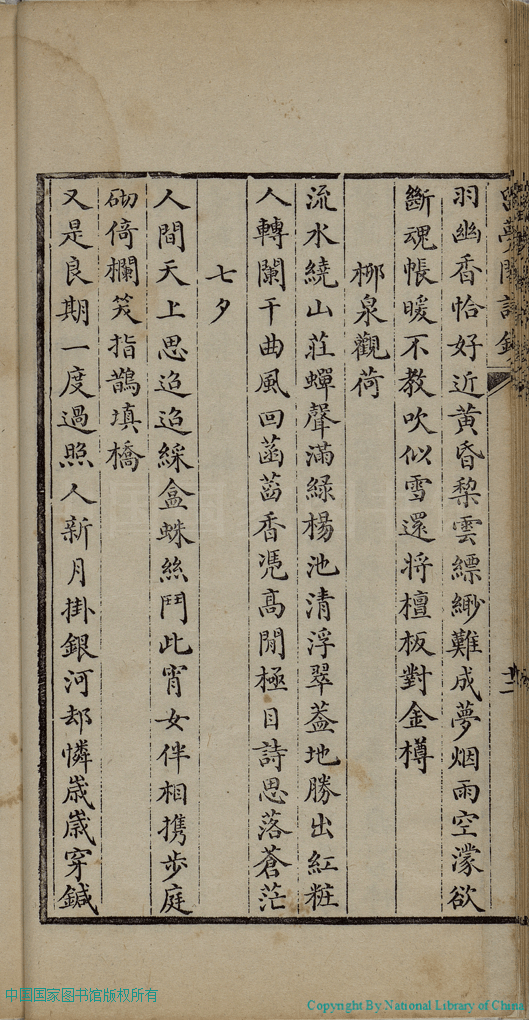 羽幽香恰好近黄昏梨雲縹緲難成夢烟雨空濛欲
斷魂帳暖不教吹似雪還将檀板對金樽
柳泉觀荷
流水繞山莊蟬聲滿綠楊池清浮翠蓋地勝出紅粧
人轉闌干曲風回菡萏香凴高閒極目詩思落蒼茫
七夕
人間天上思迢迢綵盒蛛絲鬥此宵女伴相携步庭
砌倚欄笑指鵲填橋
又是良期一度過照人新月掛銀河却憐歲歲穿鍼
中国国家图书馆版权所有
Copyright By National Library of China